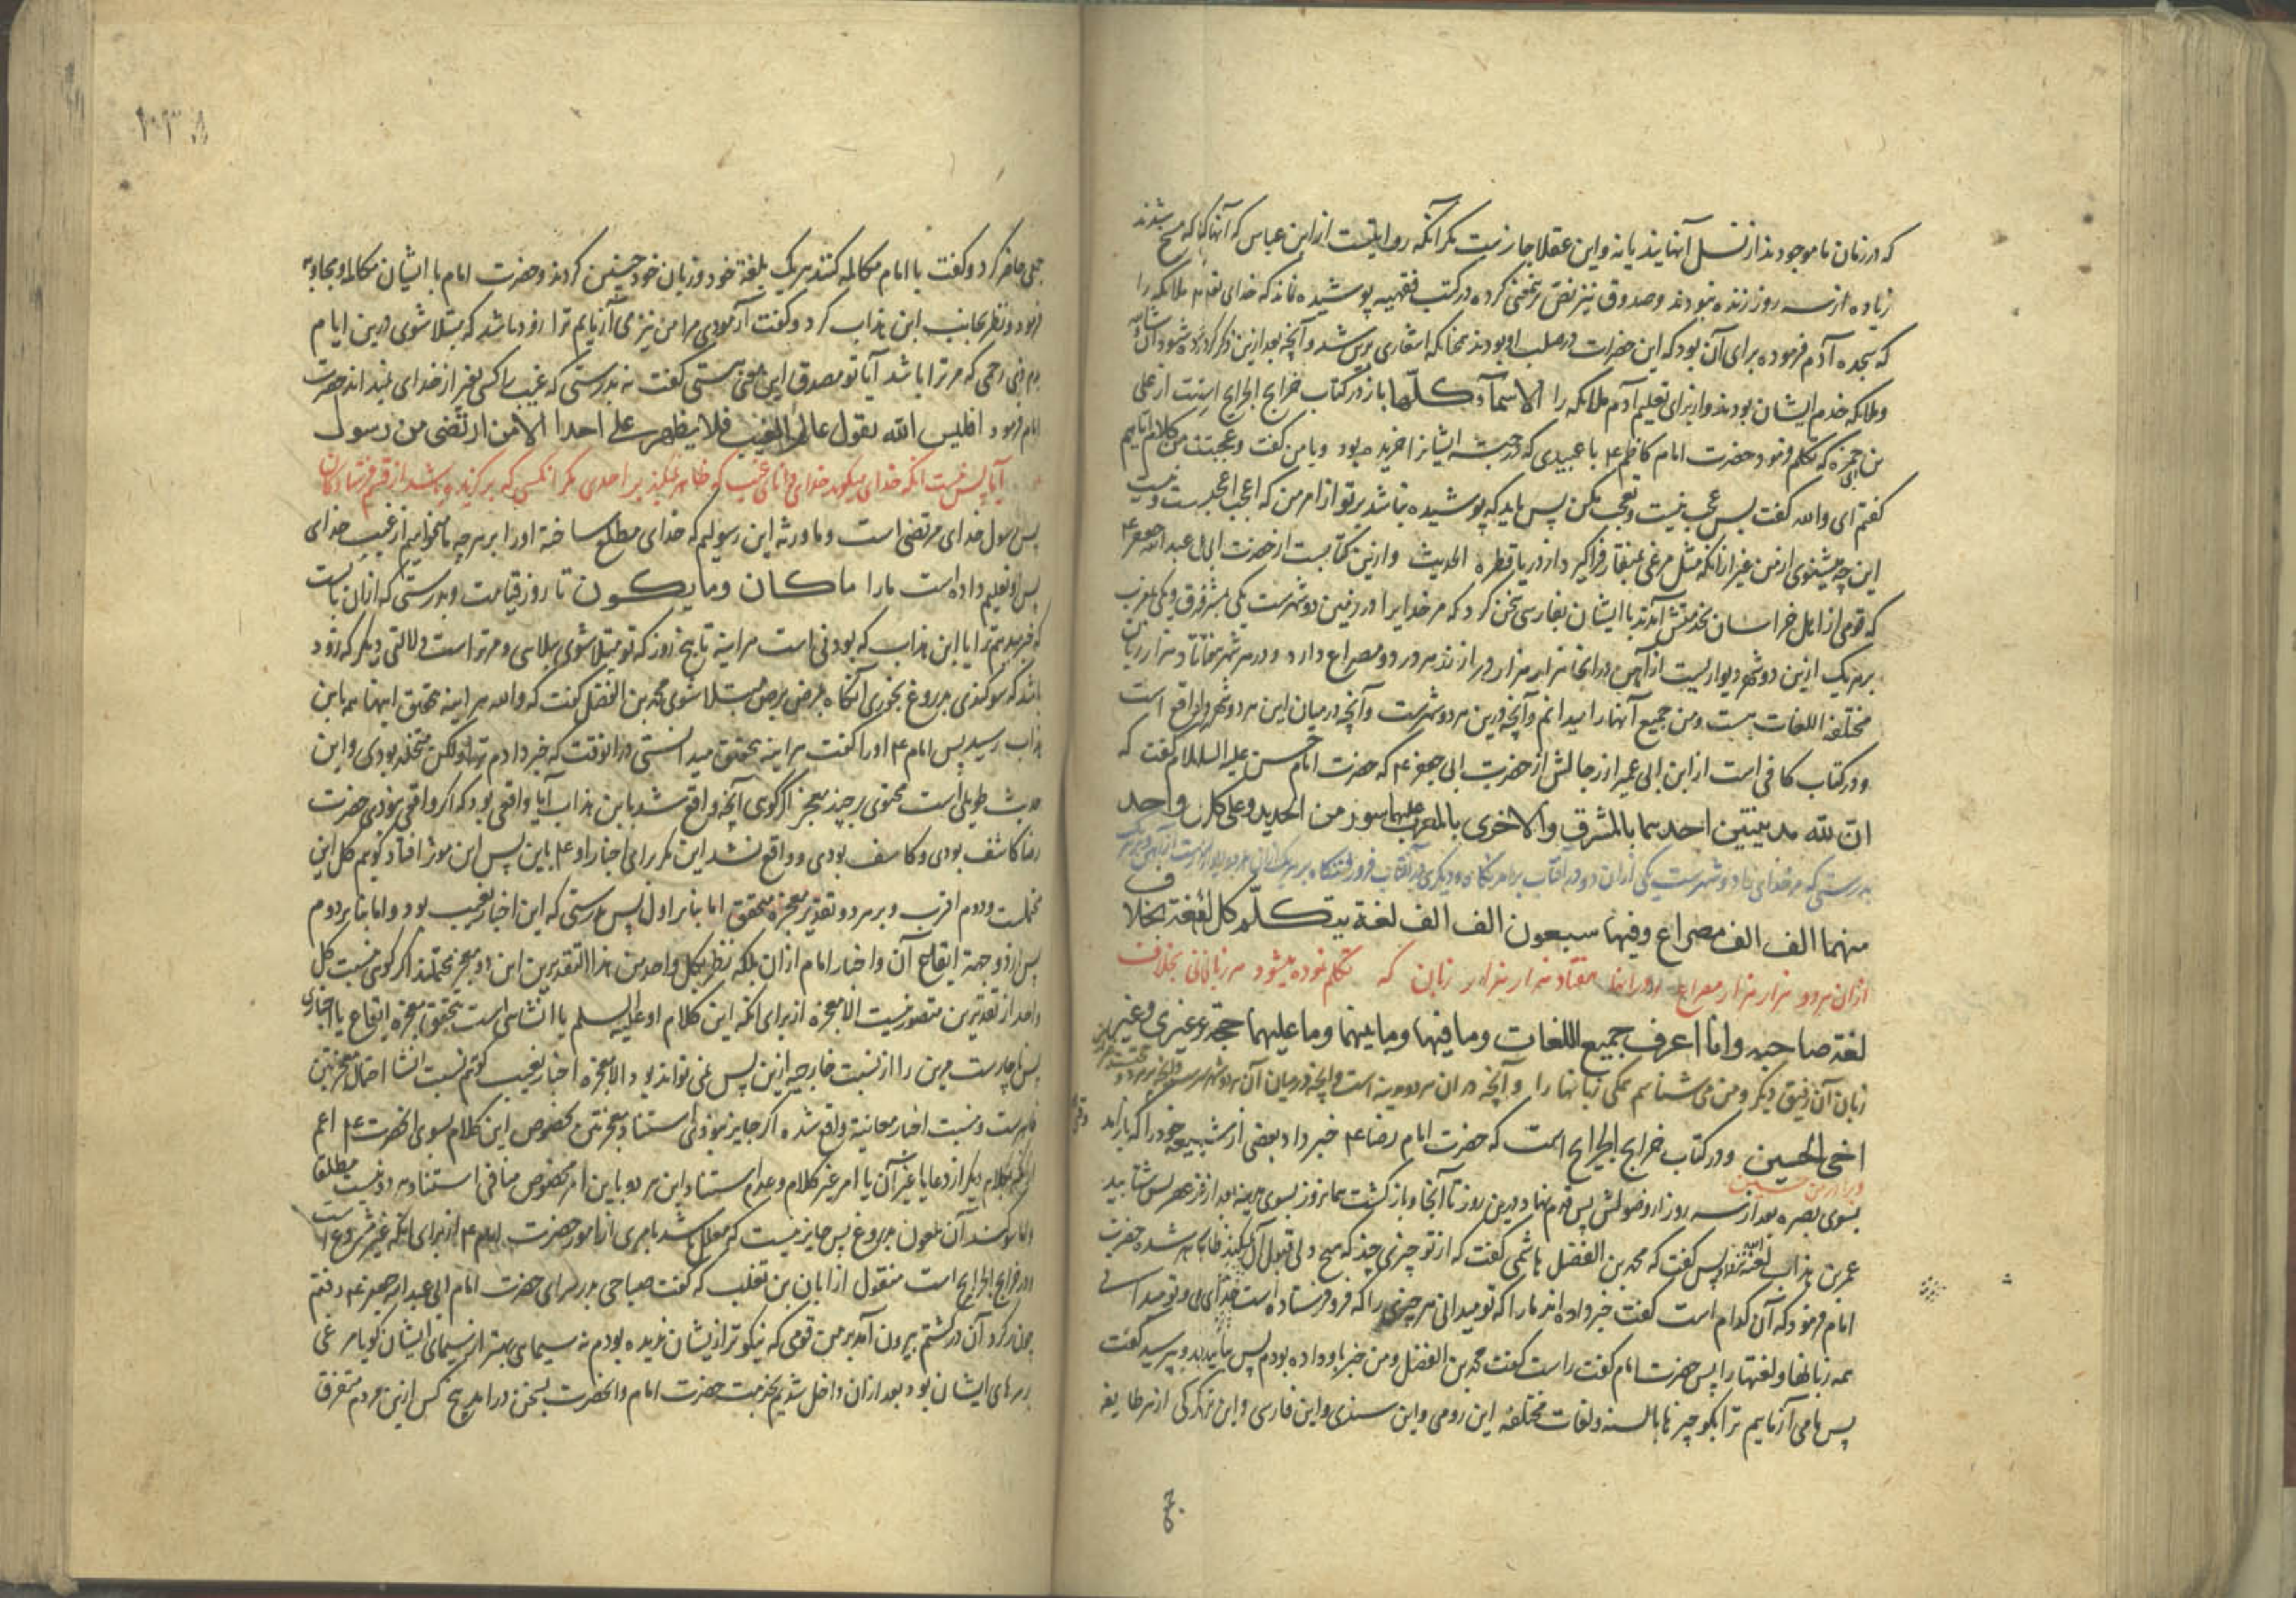 که در زمان ما موجودند از نسل آنهایند یا نه و این عقلا جایزست مگر آنکه روایتیست از ابن عباس که آنها که مسخ شدند
زیاده از سه روز زنده نبودند و صدوق نیز نص بر معنی کرده در کتب فقهیه پوشیده نماند که خدای تعالی ملائکه را
که بسجده آدم فرموده برای آن بود که این حضرات در صلب او بودند چنانکه اشعاری برین شد و آنچه بعد ازین ذکر کرده شود
و ملائکه خدم ایشان بودند و از برای تعلیم آدم ملائکه را الاسمآء کلّها باز در کتاب خرایج الجرایح است از علی
بن ابی حمزه که تکلم فرمود حضرت امام کاظم ۴ با عبیدی که از حبشه ایشانرا خریده بود و با من گفت و عجبت من کلامی ایاهم
گفتم ای والله گفت پس عجب نیست و تعجب مکن پس باید که پوشیده نباشد بر تو از امر من که اعجب و
این چه میشنوی از من غیر از آنکه مثل مرغی بمنقار فراگیرد از دریا قطره الحدیث و ازین کتابست از حضرت ابی عبد الله جعفر ۴
که قومی از اهل خراسان بخدمتش آمدند با ایشان بفارسی سخن کرد که مر خدایرا در زمین دو شهرست یکی بمشرق و یکی بمغرب
بر هر یک ازین دو شهر دیواریست از آهن در آنجا هزار هزار در از زر هر در دو مصراع دارد و در هر شهر هفتاد هزار زبان
مختلفة اللغات هست و من جمیع آنها را میدانم و آنچه درین هر دو شهرست و آنچه در میان این هر دو شهر واقع است
و در کتاب کافی است از ابن ابی عمیر از رجالش از حضرت ابی جعفر ۴ که حضرت امام حسن علیه السلام گفت که
انّ لله مدینتین احدیهما بالمشرق والاخری بالمغرب علیهما سور من الحدید وعلی کل واحد
بدرستی که مر خدای را دو شهرست یکی ازان دو در آفتاب برآمدنگاه و دیگری در آفتاب فرو رفتنگاه بر هر یک ازان هر دو دیواریست از آهن
منهما الف الف مصراع وفیها سبعون الف الف لغة یتکلّم کل لغة بخلاف
ازان هر دو هزار هزار مصراع و در آنها هفتاد هزار هزار زبان که تکلم نموده میشود هر زبانی بخلاف
لغة صاحبه وانا اعرف جمیع اللغات وما فیهما وما بینهما وما علیهما حجة غیری وغیر
زبان آن رفیق دیگر و من می شناسم همگی زبانها را و آنچه در ان هر دو مدینه است و آنچه در میان آن هر دو شهر است
اخی الحسین و در کتاب خرایج الجرایح است که حضرت امام رضا ۴ خبر داد بعضی از شیعه خود را که باز آید
و برادر من حسین
بسوی بصره بعد از سه روز از وصولش پس قدم نهاد درین روز تا آنجا و بازگشت همانروز بسوی مدینه بعد از فرض عصر پس شتابید
عمر بن هذاب لعنه الله پس گفت که محمد بن الفضل هاشمی گفت که از تو چیزی چند که هیچ دلی قبول آن نمیکند ظاهر شده حضرت
امام فرمود که آن کدام است گفت خبر داده اند ما را که تو میدانی هر چیزی را که فرو فرستاده است خدای و تو میدانی
همه زبانها و لغتها را پس حضرت امام گفت راست گفت محمد بن الفضل و من خبر باو داده بودم پس بیایید و بپرسید گفت
پس ما می آزماییم ترا بگو چیزها بالسنه و لغات مختلفه این رومی و این سندی و این فارسی و این ترکی از هر طایفه
جمعی حاضر کرد و گفت با امام مکالمه کنند هر یک بلغة خود و زبان خود چنین کردند و حضرت امام با ایشان مکالمه و مجاوبه
فرمود و نظر بجانب ابن هذاب کرد و گفت آزمودی مرا من نیز می آزمایم ترا زود باشد که مبتلا شوی درین ایام
بدم ذی رحمی که مر ترا باشد آیا تو مصدق این معنی هستی گفت نه بدرستی که غیب را کسی بغیر از خدای نمیداند حضرت
امام فرمود افلیس الله یقول عالم الغیب فلا یظهر علی احدا الا من ارتضی من رسول
آیا پس نیست آنکه خدای میگوید خدای دانای غیب که ظاهر نمیکند بر احدی مگر آنکسی که برگزیده باشد از قسم فرستادگان
پس رسول خدای مرتضی است و ما ورثه این رسولیم که خدای مطلع ساخته او را بر هر چه میخواهیم از غیب خدای
پس او تعلیم داده است ما را ماکان وما یکون تا روز قیامت و بدرستی که ازان بابست
که خبر میدهم ترا یا ابن هذاب که بودنی است هراینه تا پنج روز که تو مبتلا شوی ببلایی و مر ترا است دلالتی دیگر که زود
باشد که سوگندی بدروغ بخوری آنگاه بمرض برص مبتلا شوی محمد بن الفضل گفت که والله هراینه متحقق اینها همه بابن
هذاب رسید پس امام ۴ او را گفت هراینه بتحقیق میدانستی درانوقت که خبر دادم ترا و لکن متخلد بودی و این
حدیث طویلی است محتوی بر چند معجز اگر گوی آنچه واقع شد بابن هذاب آیا واقعی بود که اگر واقعی نبودی حضرت
رضا کاشف بودی و کاسف بودی و واقع نشد این مگر برای اخبار او ۴ باین پس این موثر افتاد گویم کل این
محتملست و دوم اقرب و بر هر دو تقدیر معجزه متحقق اما بنابر اول پس بدرستی که این اخبار بغیب بود و اما بنابر دوم
پس از دو جهة ایقاع آن و اخبار امام ازان بلکه نظر بکل واحد من هذا التقدیرین این دو معجزه محتملند اگر گوی نسبت کل
واحد از تقدیرین متصور نیست الا معجزه از برای آنکه این کلام او علیه السلم یا انشائی است بتحقق معجزه ایقاع یا اخباری
پس ناچارست مرین را از نسبت خارجیه ازین پس نمی تواند بود الا معجزه اخبار بغیب گویم نسبت انشا احتمال معجزتین
ظاهرست و نسبت اخبار معاینة واقع شده اگر جایز نبودی استناد معجزتین بخصوص این کلام بسوی آنحضرت ۴ اعم
بکلام دیگر از دعا یا غیر آن یا امر غیر کلام و عدم استناد این هر دو باین امر مخصوص منافی استناد هر دو نیست مطلقا
و اما سوگند آن ملعون بدروغ پس جایز نیست که معلل باشد بامری از امور حضرت امام ۴ از برای آنکه غیر مشروع است
و در خرایج الجرایح است منقول از ابان بن تغلب که گفت صباحی بدر سرای حضرت امام ابی عبد الله جعفر ۴ رفتم
چون گرد آن در گشتم بیرون آمد بر من قومی که نیکوتر ازیشان ندیده بودم نه سیمایی بهتر از سیمای ایشان گویا مرغی
بر سرهای ایشان بود بعد ازان داخل شدیم بخدمت حضرت امام و آنحضرت بسخن درامد هیچ کس ازین مردم متفرق